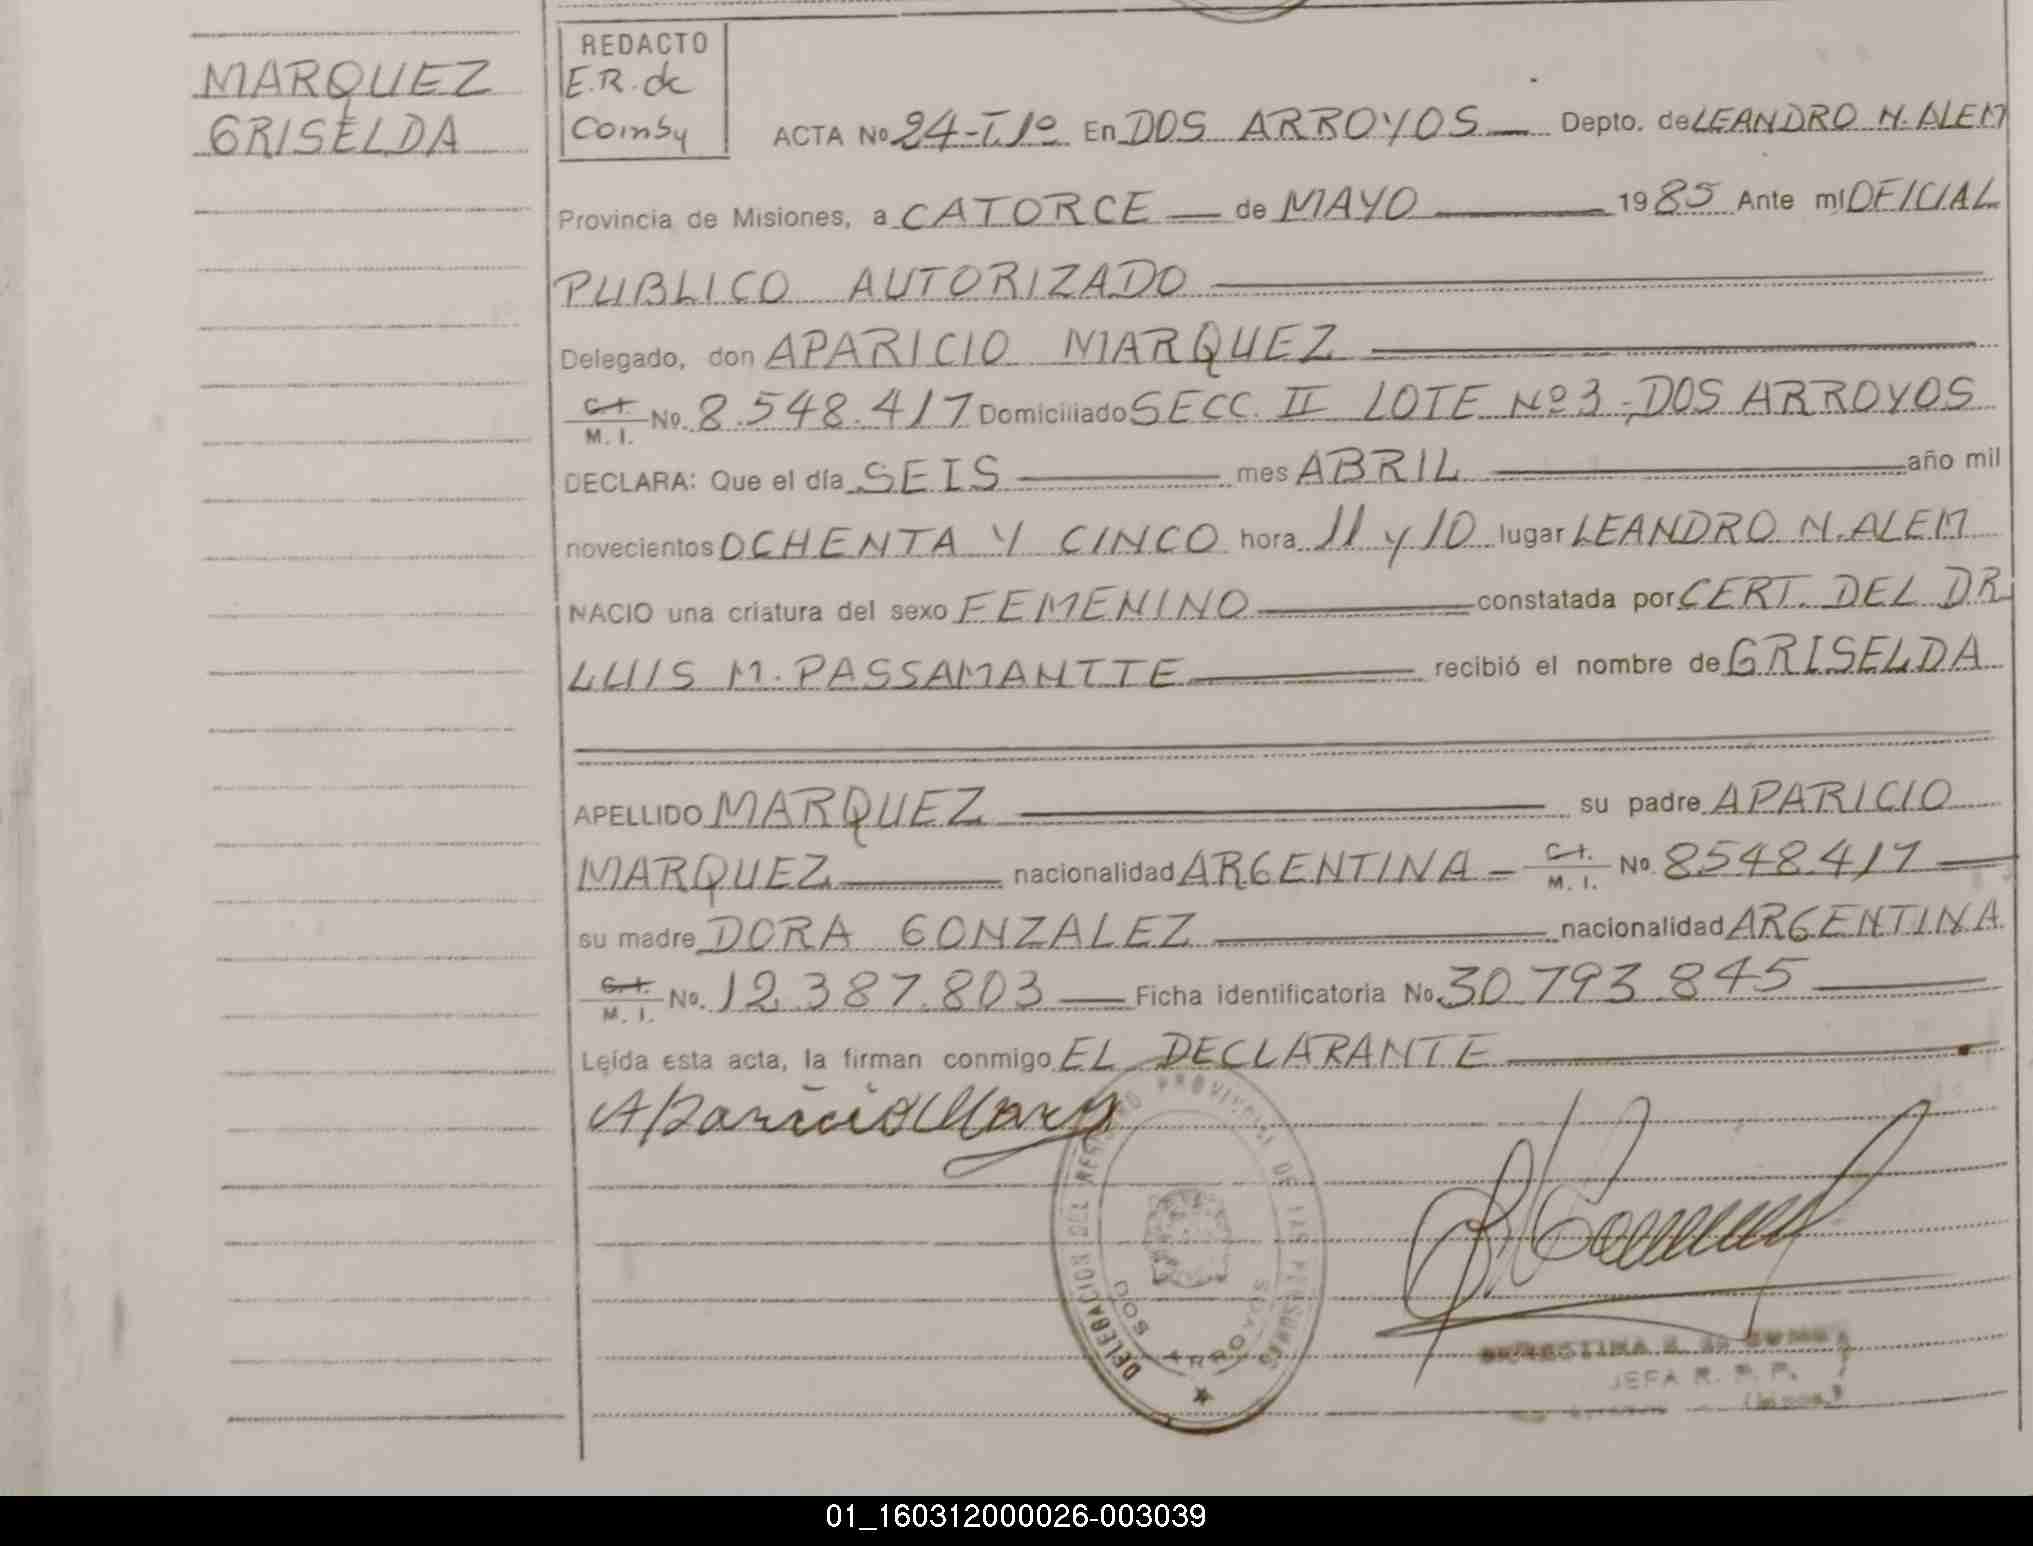 MARQUEZ
GRISELDA
REDACTO
E.R. de
ACTA No 24-T1º En DOS ARROYOS Depto. de LEANDRO N. ALEM
Provincia de Misiones, a CATORCE de MAYO 1985 Ante mi OFICIAL
PUBLICO AUTORIZADO
Delegado, don APARICIO MARQUEZ
C.I. M. I. No. 8.548.417 Domiciliado SECC. II LOTE Nº 3-DOS ARROYOS
DECLARA: Que el día SEIS mes ABRIL año mil
novecientos OCHENTA Y CINCO hora 11 y 10 lugar LEANDRO N. ALEM
NACIO una criatura del sexo FEMENINO constatada por CERT. DEL DR
LUIS M. PASSAMANTTE recibió el nombre de GRISELDA
APELLIDO MARQUEZ su padre APARICIO
MARQUEZ nacionalidad ARGENTINA C.I. M. I. No. 8548.417
su madre DORA GONZALEZ nacionalidad ARGENTINA
C.I. M. I. No. 12.387.803 Ficha identificatoria No. 30.793.845
Leída esta acta, la firman conmigo EL DECLARANTE
Aparicio Marq
DELEGACION DEL REGISTRO PROVINCIAL DE LAS PERSONAS
DOS ARROYOS
JEFA R. P. P.
01_160312000026-003039